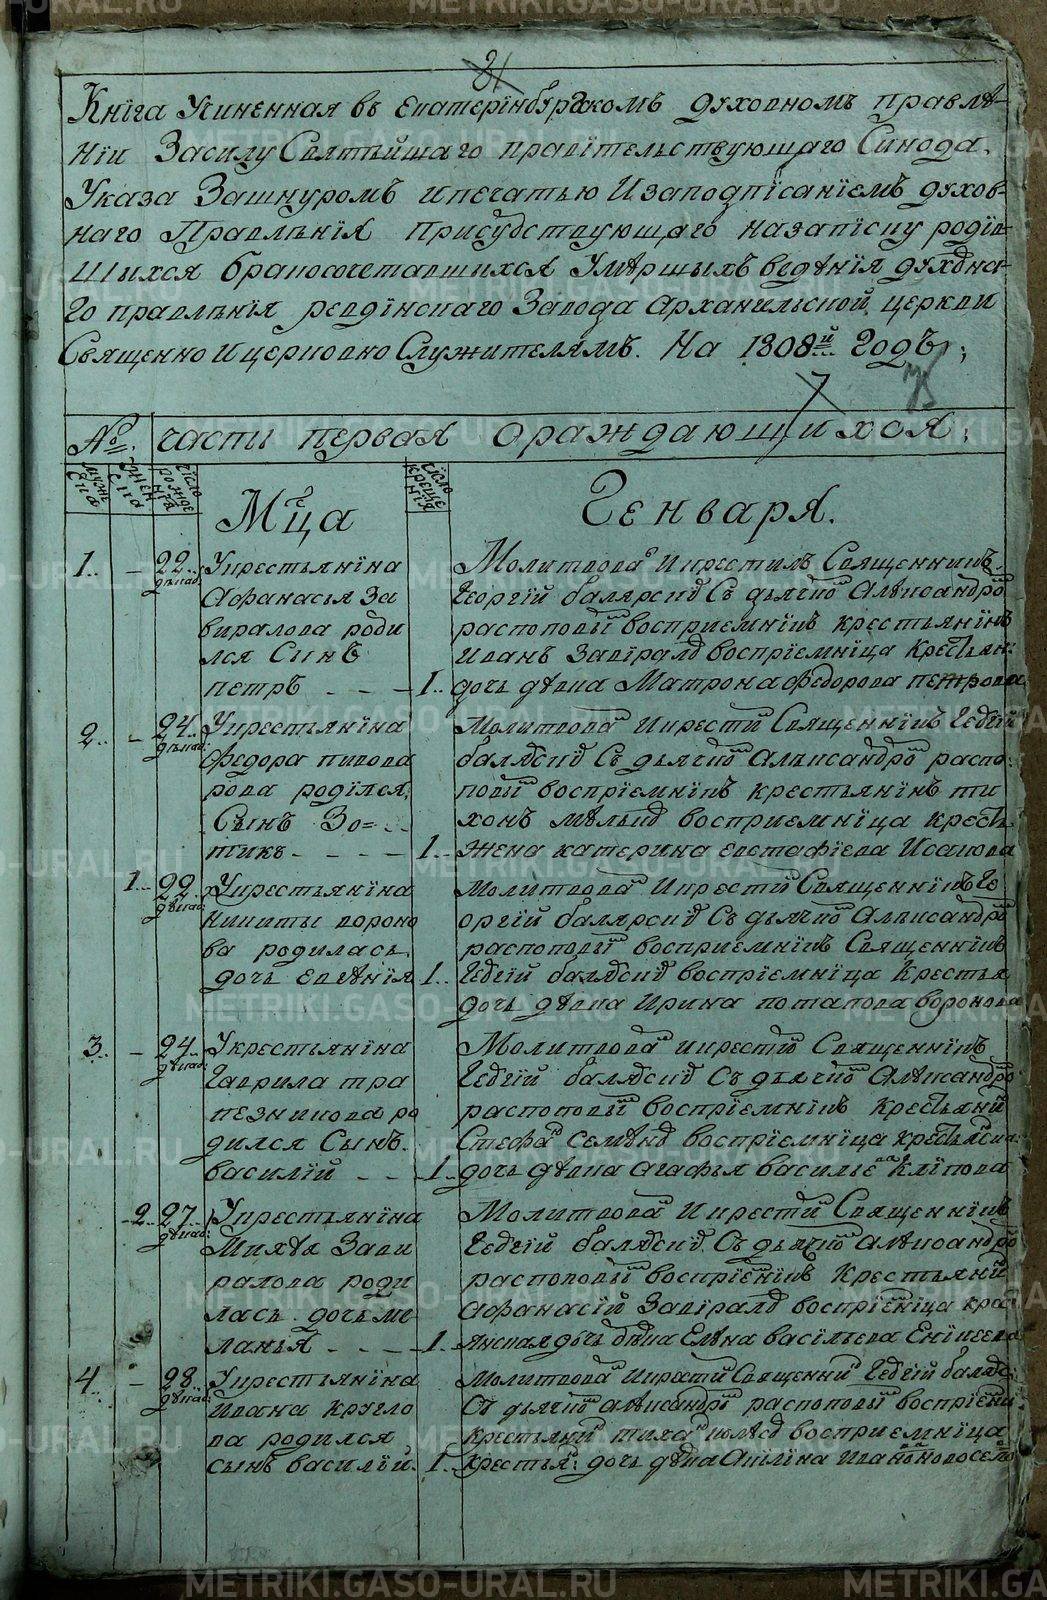 Книга Учиненная въ Екатеринбургскомъ духовномъ правле-
нїи Засилу Святѣйшаго правительствующаго Синода.
Указа Зашнуромъ ипечатью Изаподписанїемъ духов-
наго Правленїя присудствующаго назаписку родив-
шихся бракосочетавшихся Умершыхъ веденїя духовна-
го правленїя ревдинскаго Завода Архангильской церкви
Священно Ицерковно Служителямъ. На 1808й годъ;
№. Части первая Ораждающихся;
мужеска
женска
число рожденїя
Мца
число крещенїя
Генваря.
1.. – 22.. декаб: Укрестьянина
Афанасья За
виралова роди
лся Синъ
петръ - - - 1..
Молитвова Икрестилъ Священникъ
Георгїй балярский Съ дьячко Алѣксандро
распоповы воспрїемникъ крестьянинъ
Иванъ Завирало воспрїемница крестьян:
дочь девка Матрона федорова петрова
2.. – 24.. декаб: Укрестьянина
федора пивова
рова родился
Сынъ Зо=
тикъ - - - 1..
Молитвова Икрести Священникъ Георгїй
балярский Съ дьячко Алѣксандро распо:
повы воспрїемникъ крестьянинъ ти
хонъ воспрїемница кресть
жена катерина евстафїева Исакова
1.. 22.. декаб: Укрестьянина
Никиты вороно
ва родилась
дочь Евгенїя 1..
Молитвова Икрести Священникъ Ге
оргїй балярский Съ дьячко Алѣксандро
распоповы воспрїемникъ Священникъ
Георгїй балярский воспрїемница Крестья
дочь девка Ирина потапова воронова
3.. – 24.. декаб: Укрестьянина
Гаврила тра
пезникова ро
дился Сынъ
василїй - - 1..
Молитвова икрести Священникъ
Георгїй балярский Съ дьячко Алѣксандро
распоповы воспрїемникъ крестьяни
Стефа воспрїемница крестьянска
дочь девка агафья василье
2.. 27.. декаб: Укрестьянина
Михея Зави
ралова роди
лась дочь ме
ланья - - - 1..
Молитвова Икрести Священникъ
Георгїй балярский Съ дьячко Алѣксандро
распоповы воспрїемникъ Крестьяни
Афанасїй Завирало воспрїемница кре
янская дочь девка Елена васильева
4.. – 28.. декаб: Укрестьянина
Ивана кругло
ва родился
сынъ василїй. 1..
Молитвова Икрести Священни Георгїй баляр:
Съ дьячко алѣксандро распоповы воспрїемни
крестьяни тиха воспрїемница
крестья: дочь девка Акилина Иванова новосело
METRIKI.GASO-URAL.RU